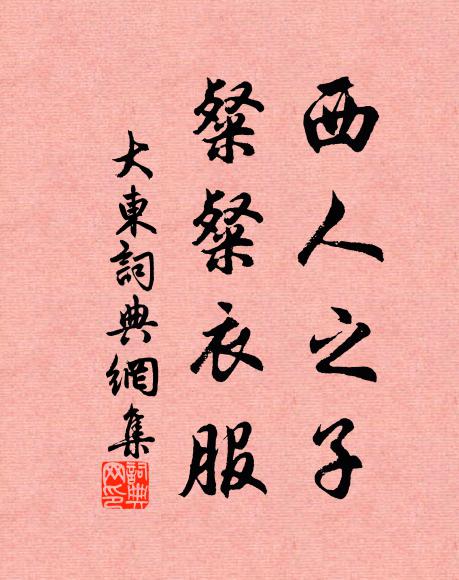 西人之子
粲粲衣服
大東詞典網集
詞典网印